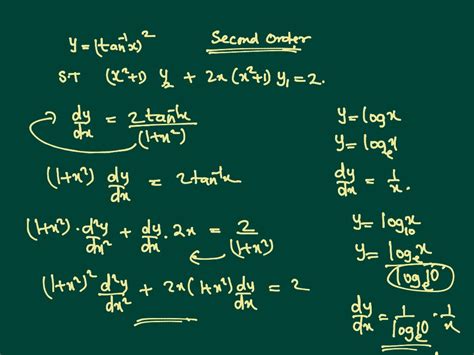 y = (tan⁻¹x)²
Second Order
S.T (x²+1) y₂ + 2x (x²+1) y₁ = 2.
dy/dx = 2tan⁻¹x/(1+x²)
(1+x²) dy/dx = 2tan⁻¹x
(1+x²) · d²y/dx² + dy/dx · 2x = 2/(1+x²)
(1+x²)² d²y/dx² + 2x(1+x²) dy/dx = 2
y = logx
y = logₑx
dy/dx = 1/x.
y = log₁₀x
y = logₑx/logₑ10
dy/dx = 1/logₑ10 · 1/x